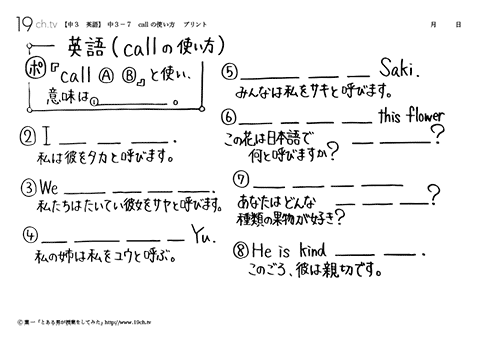 19ch.tv 【中3 英語】 中3-7 callの使い方 プリント 月 日
英語(callの使い方)
ポ 『call Ⓐ Ⓑ』と使い、
意味は①______。
② I ___ ___ ___.
私は彼をタカと呼びます。
③ We ___ ___ ___ ___.
私たちはたいてい彼女をサヤと呼びます。
④ ___ ___ ___ ___ Yu.
私の姉は私をユウと呼ぶ。
⑤ ___ ___ ___ Saki.
みんなは私をサキと呼びます。
⑥ ___ ___ ___ ___ this flower
___ ___?
この花は日本語で
何と呼びますか?
⑦ ___ ___ ___ ___
___ ___?
あなたはどんな
種類の果物が好き?
⑧ He is kind ___ ___.
このごろ、彼は親切です。
Ⓒ 葉一「とある男が授業をしてみた」http://www.19ch.tv